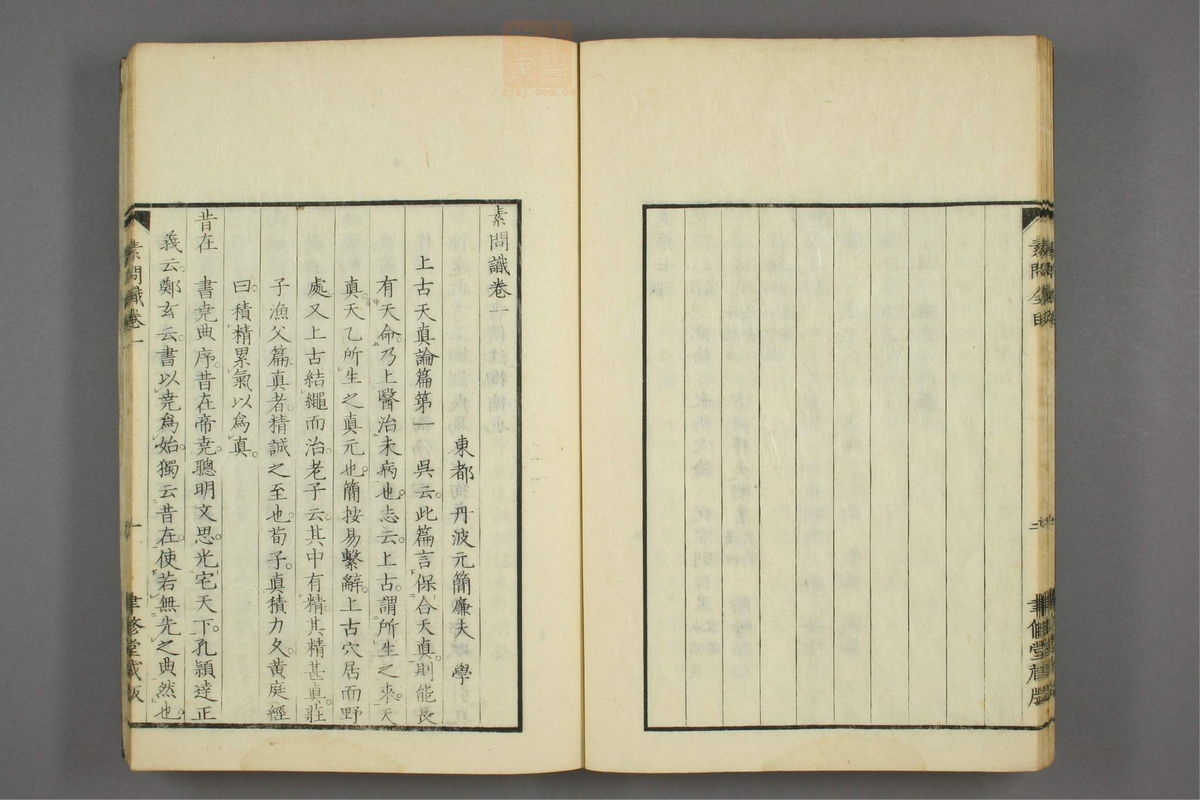 素問識卷一
東都 丹波元簡廉夫 學
上古天真論篇第一 吳云。此篇言保合天真。則能長
有天命。乃上醫治未病也。志云。上古謂所生之來。天
真。天乙所生之真元也。簡按易繫辭。上古穴居而野
處。又上古結繩而治。老子云。其中有精。其精甚真。莊
子漁父篇。真者。精誠之至也。荀子。真積力久。黃庭經
曰。積精累氣以為真。
昔在 書堯典序。昔在帝堯。聰明文思。光宅天下。孔穎達正
義云。鄭玄云。書以堯為始。獨云昔在。使若無先之典然也。
素問識卷一
一
聿修堂藏版
素問全目
聿修堂藏版
zysj.com.cn